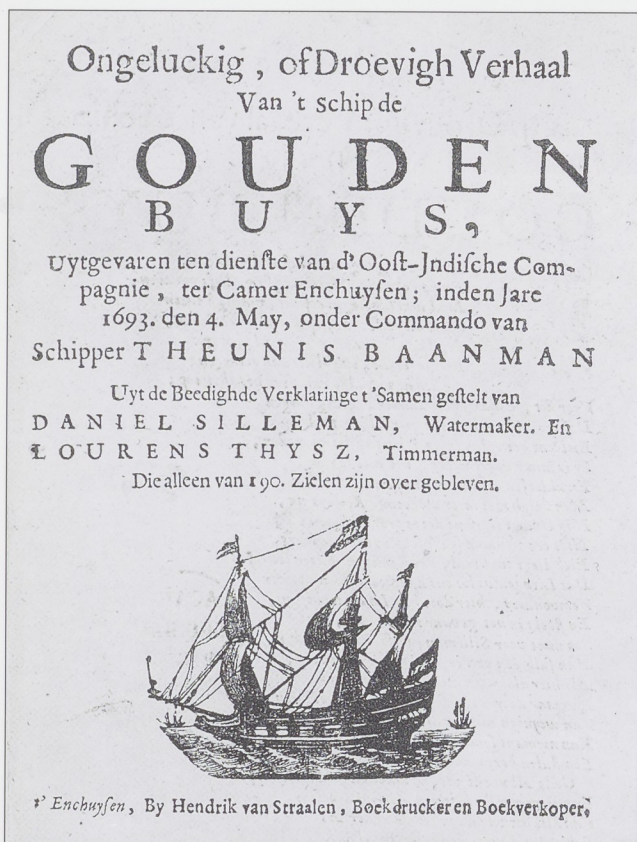 Ongeluckig , of Droevigh Verhaal
Van 't schip de
GOUDEN
BUYS,
Uytgevaren ten dienſte van d' Ooſt-Jndiſche Com-
pagnie , ter Camer Enchuyſen ; inden Jare
1693. den 4. May, onder Commando van
Schipper THEUNIS BAANMAN
Uyt de Beedighde Verklaringe t 'Samen geſtelt van
DANIEL SILLEMAN, Watermaker. En
LOURENS THYSZ, Timmerman.
Die alleen van 190. Zielen zijn over gebleven.
t' Enchuyſen, By Hendrik van Straalen, Boekdrucker en Boekverkoper.